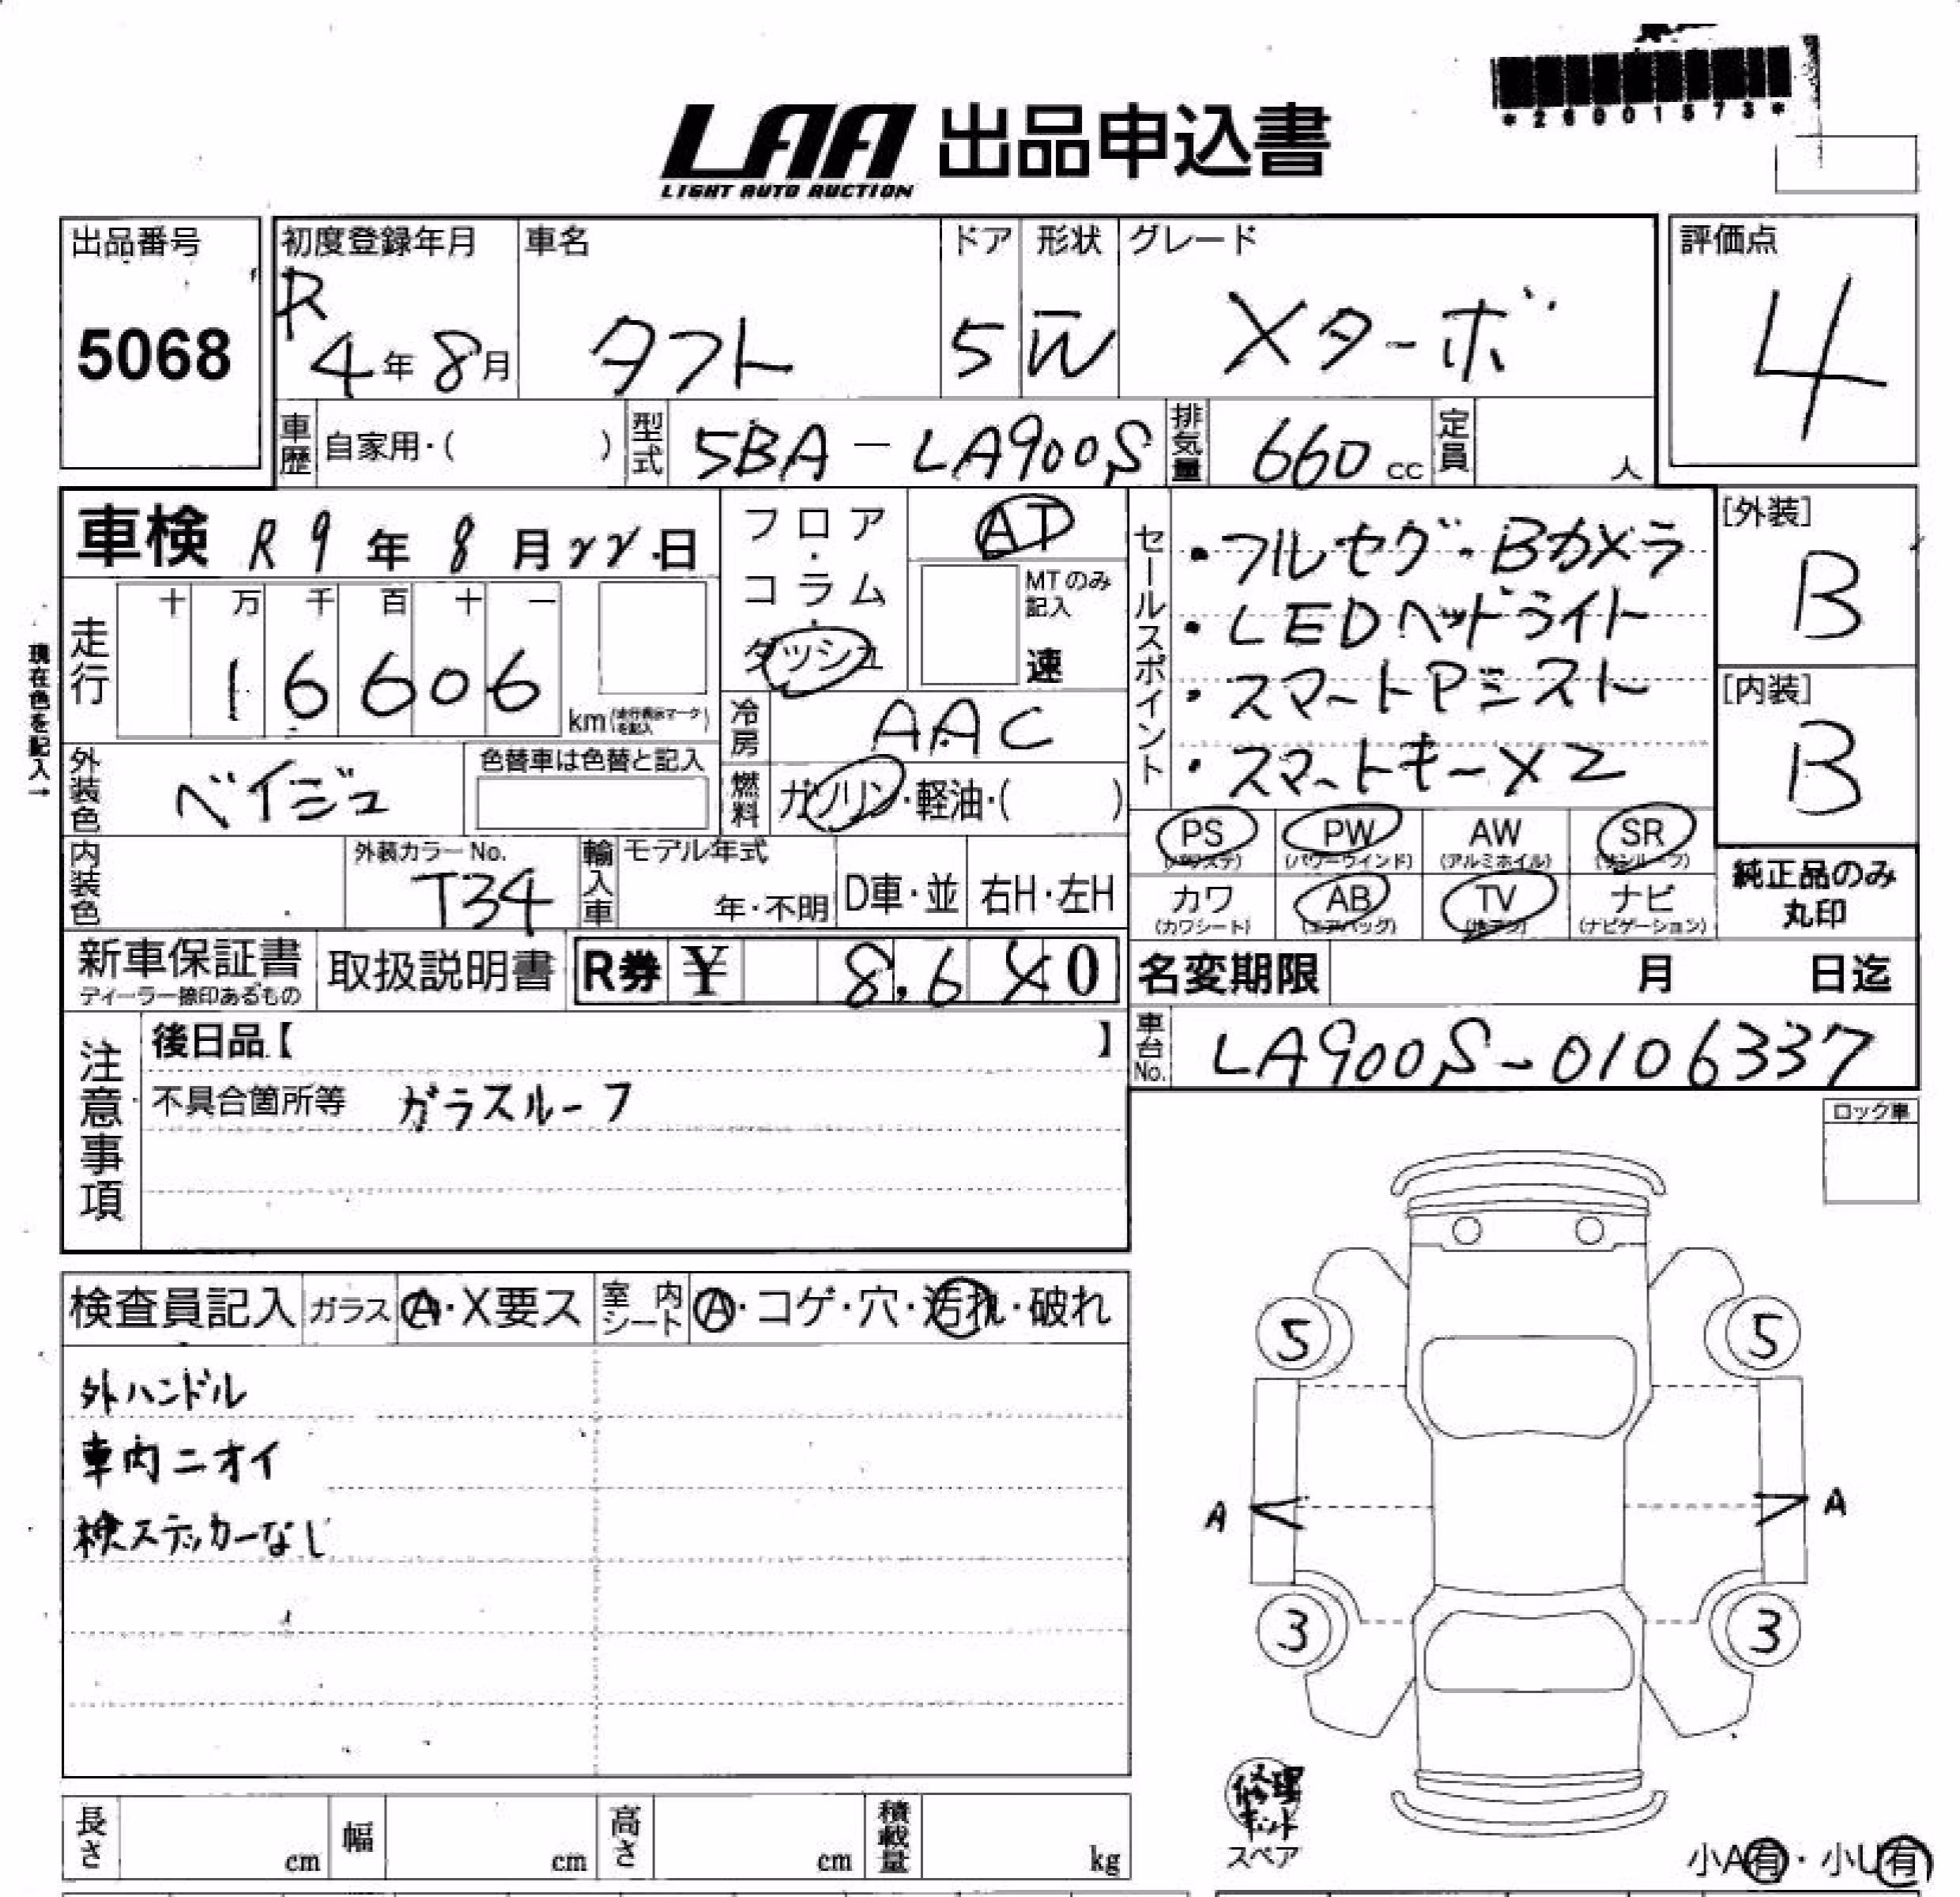 *26001573*
LAA 出品申込書
LIGHT AUTO AUCTION
出品番号 初度登録年月 車名 ドア 形状 グレード 評価点
5068 R4年8月 タフト 5 W Xターボ 4
車歴 自家用・( ) 型式 5BA-LA900S 排気量 660cc 定員 人
車検 R9年8月22日 フロア・コラム・ダッシュ AT
MTのみ記入 速
走行 十 万 千 百 十 一
16606 km(走行表示マークを記入)
現在色を記入→
冷房 AAC
外装色 ベイジュ 色替車は色替と記入 燃料 ガソリン・軽油・( )
セールスポイント
・フルセグ・Bカメラ
・LEDヘッドライト
・スマートアシスト
・スマートキーX2
[外装] B
[内装] B
PS(パワステ) PW(パワーウインド) AW(アルミホイル) SR(サンルーフ)
カワ(カワシート) AB(エアバッグ) TV(地デジ) ナビ(ナビゲーション)
純正品のみ丸印
内装色 外装カラーNo. T34 輸入車 モデル年式 年・不明 D車・並 右H・左H
新車保証書 ディーラー捺印あるもの 取扱説明書 R券 ¥ 8,6 0
名変期限 月 日迄
車台No. LA900S-0106337
注意事項 後日品【 】
不具合箇所等 ガラスルーフ
ロック車
検査員記入 ガラス A・X要ス 室内シート A・コゲ・穴・汚れ・破れ
外ハンドル
車内ニオイ
検ステッカーなし
5 5
A A
3 3
修理キット
スペア
小A有・小U有
長さ cm 幅 cm 高さ cm 積載量 kg